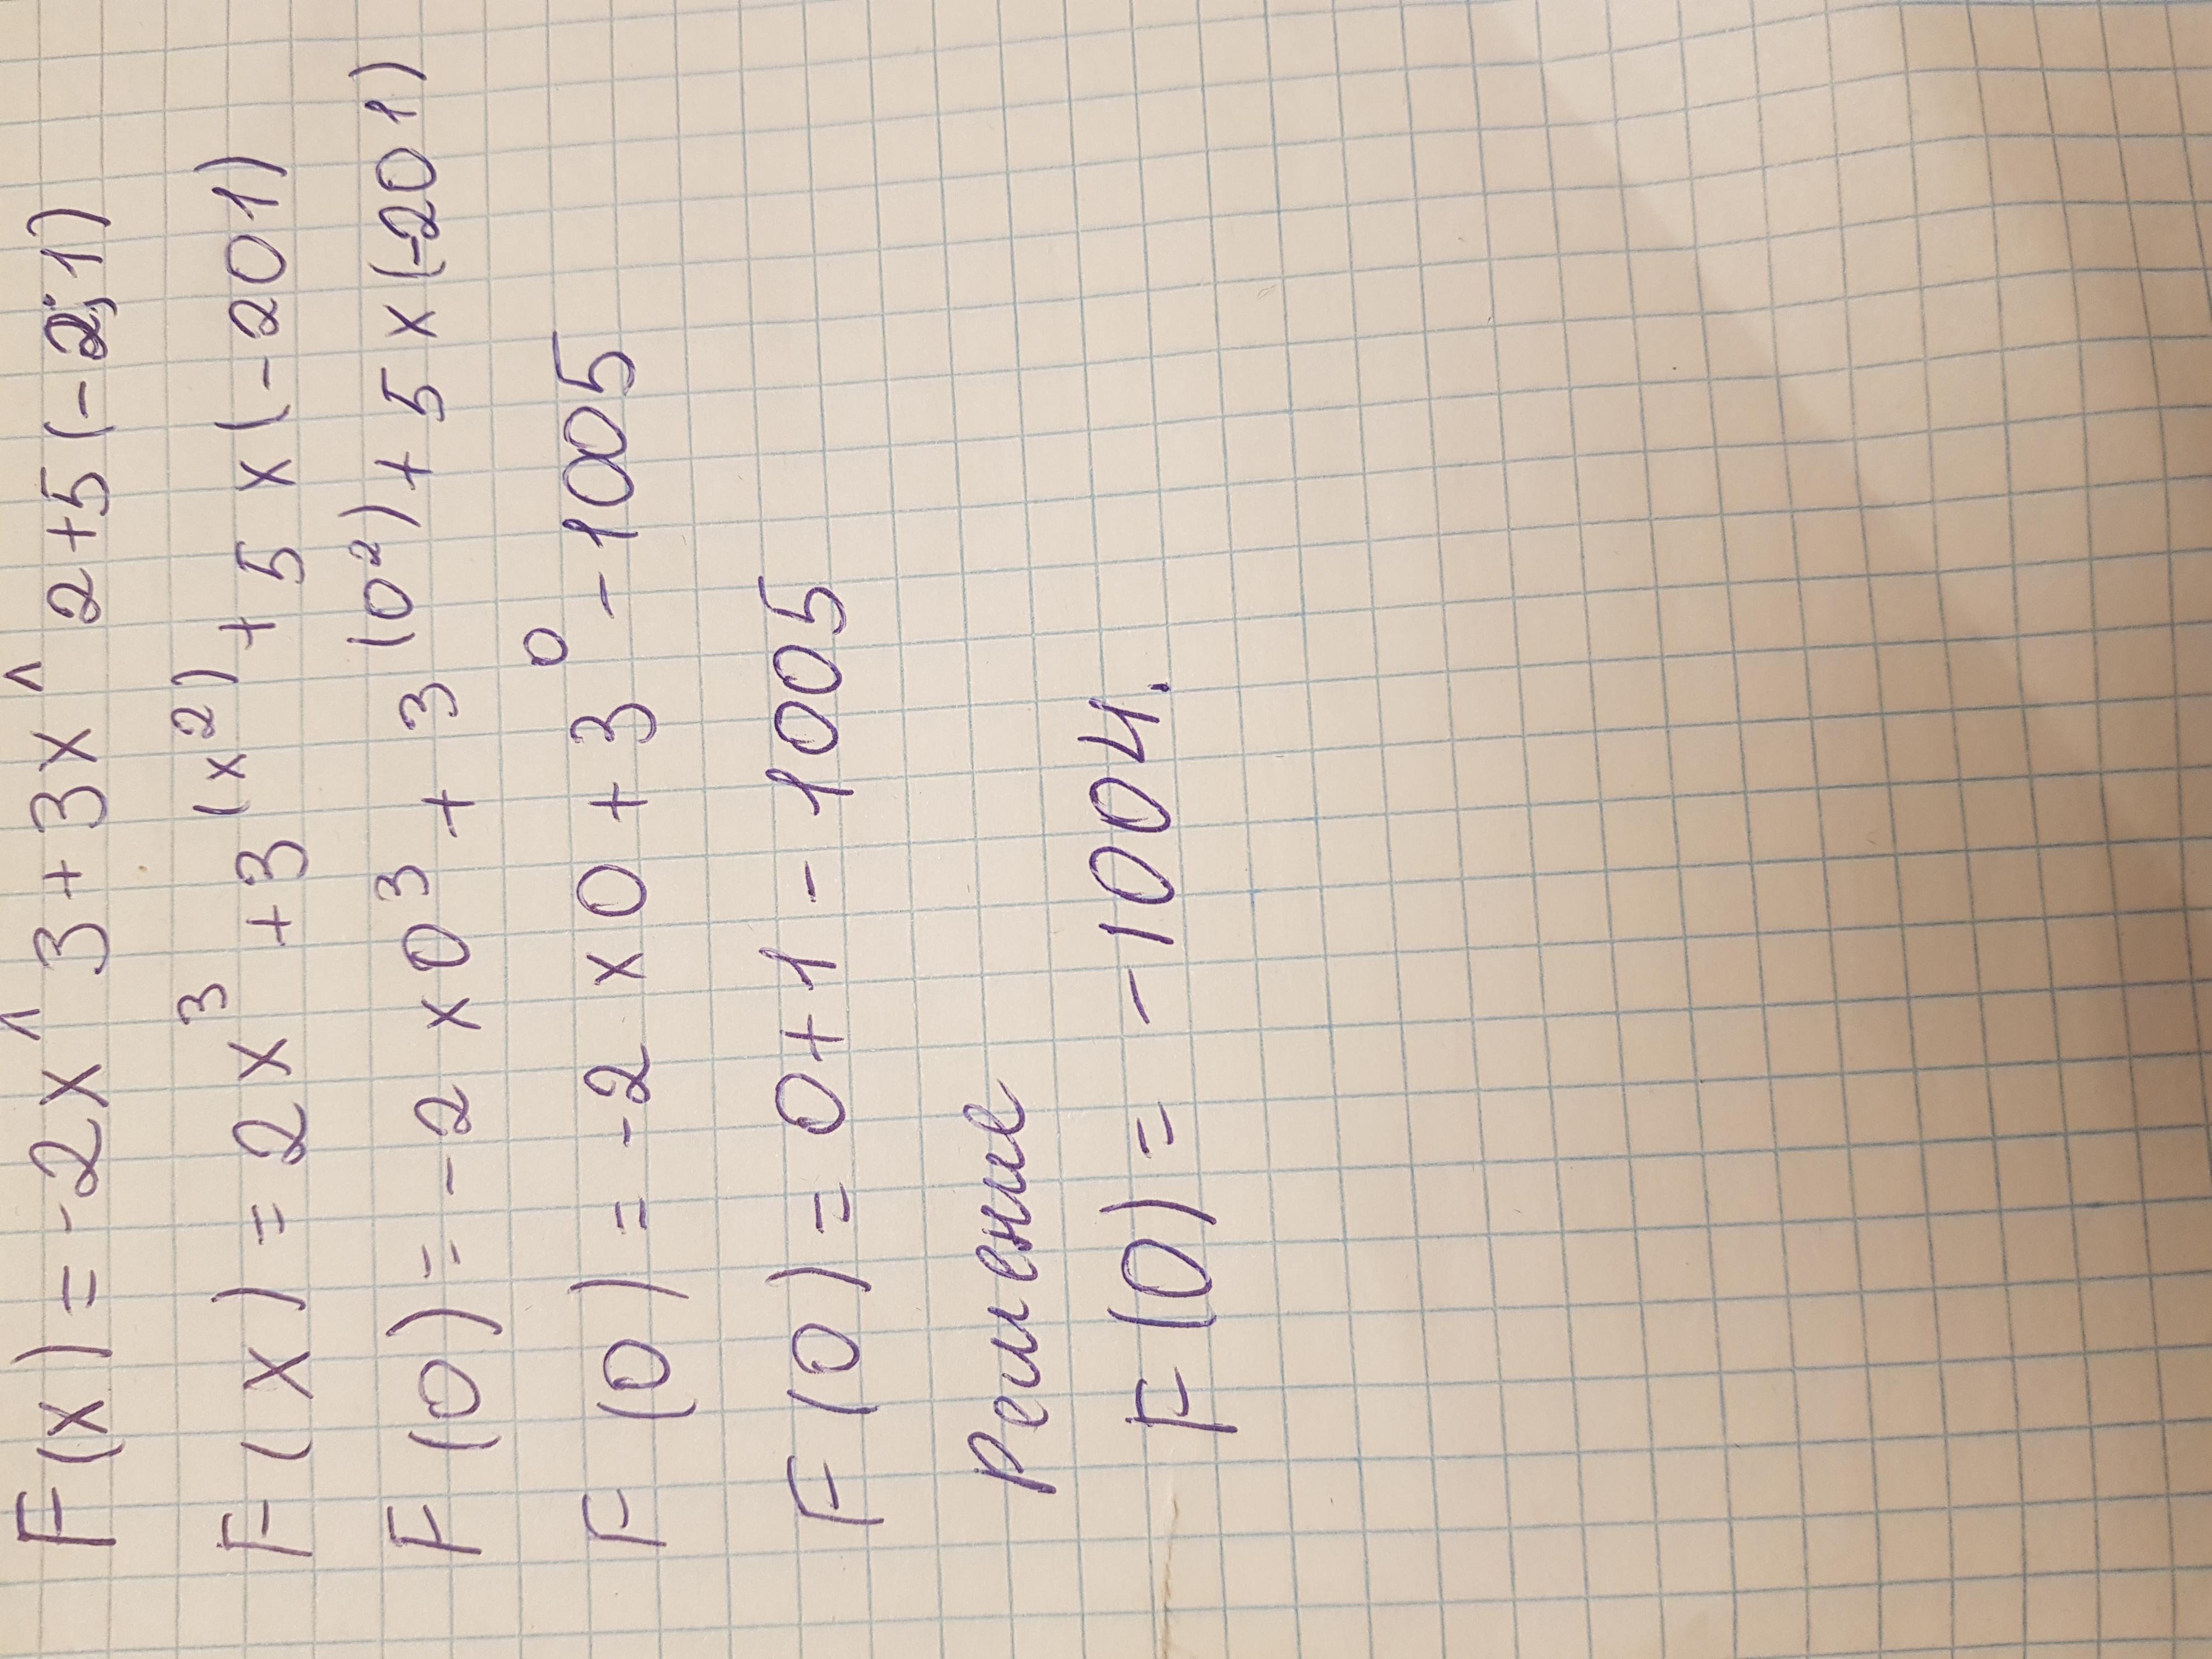 F(x)=-2x^3+3x^2+5(-2;1)
F(x)=2x³+3^(x²)+5x(-201)
F(0)=-2x0³+3^(0²)+5x(-201)
F(0)=-2x0+3⁰-1005
F(0)=0+1-1005
Решение
F(0)=-1004.